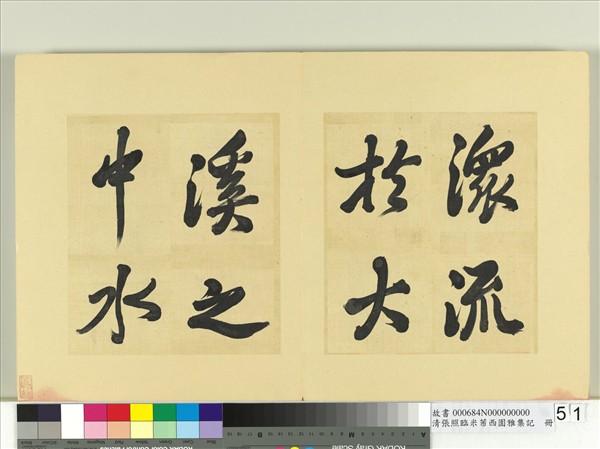 潨流
於大
溪之
中水
故書 000684N000000000
清張照臨米芾西園雅集記 冊
51
KODAK Gray Scale